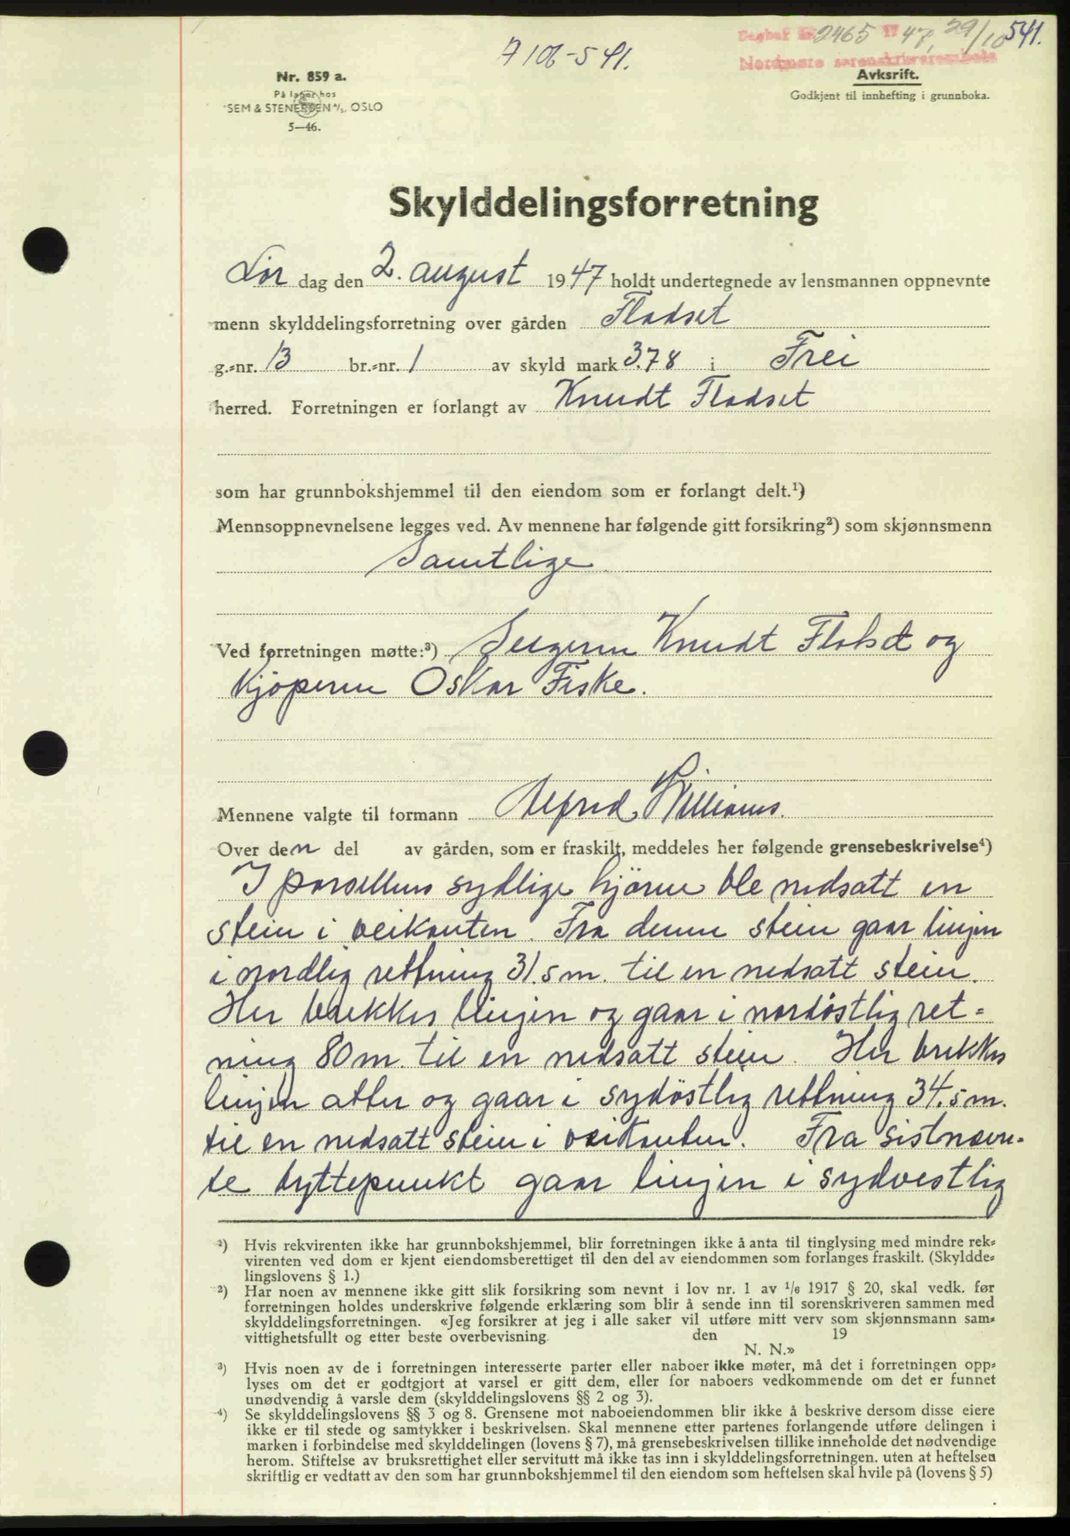 Dagbok nr. 2465 1947, 29/10 541.
7106-541.
Nordmøre sorenskriverembete
Nr. 859 a.
På lager hos
SEM & STENERSEN A/S, OSLO
5—46.
Avkskrift.
Godkjent til innhefting i grunnboka.
Skylddelingsforretning
Lør dag den 2. august 1947 holdt undertegnede av lensmannen oppnevnte
menn skylddelingsforretning over gården Fladset
g.-nr. 13 br.-nr. 1 av skyld mark 3.78 i Frei
herred. Forretningen er forlangt av Knudt Fladset
som har grunnbokshjemmel til den eiendom som er forlangt delt.¹)
Mennsoppnevnelsene legges ved. Av mennene har følgende gitt forsikring²) som skjønnsmenn
Samtlige
Ved forretningen møtte:³) Selgeren Knudt Flatset og
kjöperen Oskar Fiske.
Mennene valgte til formann Alfred Williams.
Over den del av gården, som er fraskilt, meddeles her følgende grensebeskrivelse⁴)
I parsellens sydlige hjörne ble nedsatt en
stein i veikanten. Fra denne stein gaar linjen
i nordlig rettning 31.5 m. til en nedsatt stein.
Her brekkes linjen og gaar i nordöstlig ret-
ning 80 m. til en nedsatt stein. Her brekkes
linjen atter og gaar i sydöstlig rettning 34.5 m.
til en nedsatt stein i veikanten. Fra sistnevn-
te byttepunkt gaar linjen i sydvestlig
¹) Hvis rekvirenten ikke har grunnbokshjemmel, blir forretningen ikke å anta til tinglysing med mindre rek-
virenten ved dom er kjent eiendomsberettiget til den del av eiendommen som forlanges fraskilt. (Skyldde-
lingslovens § 1.)
²) Har noen av mennene ikke gitt slik forsikring som nevnt i lov nr. 1 av 1/6 1917 § 20, skal vedk. før
forretningen holdes underskrive følgende erklæring som blir å sende inn til sorenskriveren sammen med
skylddelingsforretningen. «Jeg forsikrer at jeg i alle saker vil utføre mitt verv som skjønnsmann sam-
vittighetsfullt og etter beste overbevisning den 19
N. N.»
³) Hvis noen av de i forretningen interesserte parter eller naboer ikke møter, må det i forretningen opp-
lyses om det er godtgjort at varsel er gitt dem, eller for naboers vedkommende om det er funnet
unødvendig å varsle dem (skylddelingslovens §§ 2 og 3).
⁴) Se skylddelingslovens §§ 3 og 8. Grensene mot naboeiendommen blir ikke å beskrive dersom disse eiere
ikke er til stede og samtykker i beskrivelsen. Skal mennene etter partenes forlangende utføre delingen i
marken i forbindelse med skylddelingen (lovens § 7), må grensebeskrivelsen tillike inneholde det nødvendige
herom. Stiftelse av bruksrettighet eller servitutt må ikke tas inn i skylddelingsforretningen. uten at heftelsen
skriftlig er vedtatt av den som har grunnbokshjemmel til den eiendom som heftelsen skal hvile på (lovens § 5)